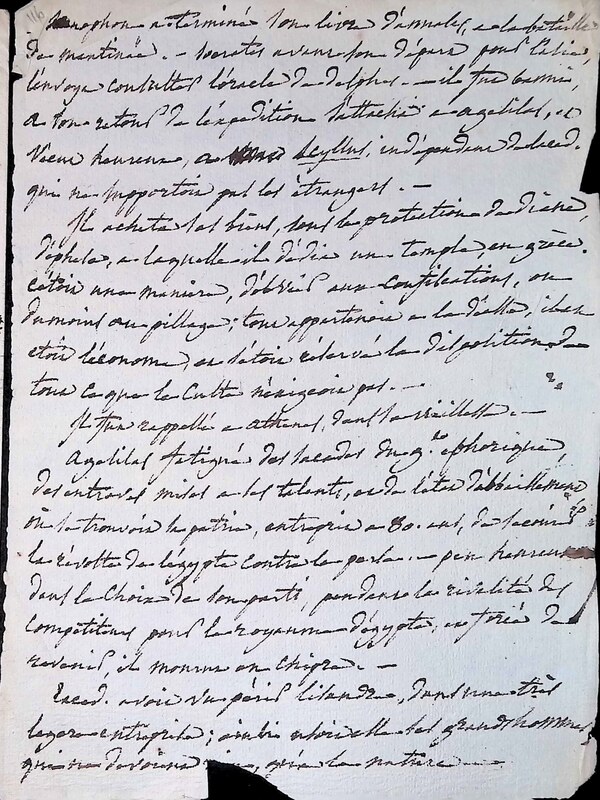 116
Xenophon a terminé son livre d'annales, a la bataille
de mantinée. - socrates avant son départ pour l'asie,
l'envoya consulter l'oracle de delphes. - il fut banni,
a son retour de l'expédition s'attacha a agesilas, et
vécut heureux, a Scyllus, indépendant de laced.
qui ne supportoit pas les étrangers. -
Il acheta des biens, sous la protection de diane,
d'éphese, a laquelle il dédia un temple, en grèce.
c'étoit une manière, d'obvier aux confiscations, ou
du moins au pillage; tout appartenoit a la déesse, il en
étoit l'économe, et s'étoit réservé la disposition de
tout ce que le culte n'éxigeoit pas. -
Il fut rappellé a athenes, dans sa vieillesse. -
Agesilas fatigué des du g.t ephorique,
des entraves mises a ses talents, et de l'état d'abaissement
où se trouvoit sa patrie, entreprit a 80. ans, de secourir
la révolte de l'égypte contre la perse. - peu heureux
dans le choix de son parti, pendant la rivalité des
compétiteurs pour le royaume d'égypte, et forcé de
revenir, il mourut en chipre. -
Laced. avoit vu périr lisandre, dans une très
legere entreprise; ainsi les grands hommes
qui ne devoient rien, qu'a la nature. -